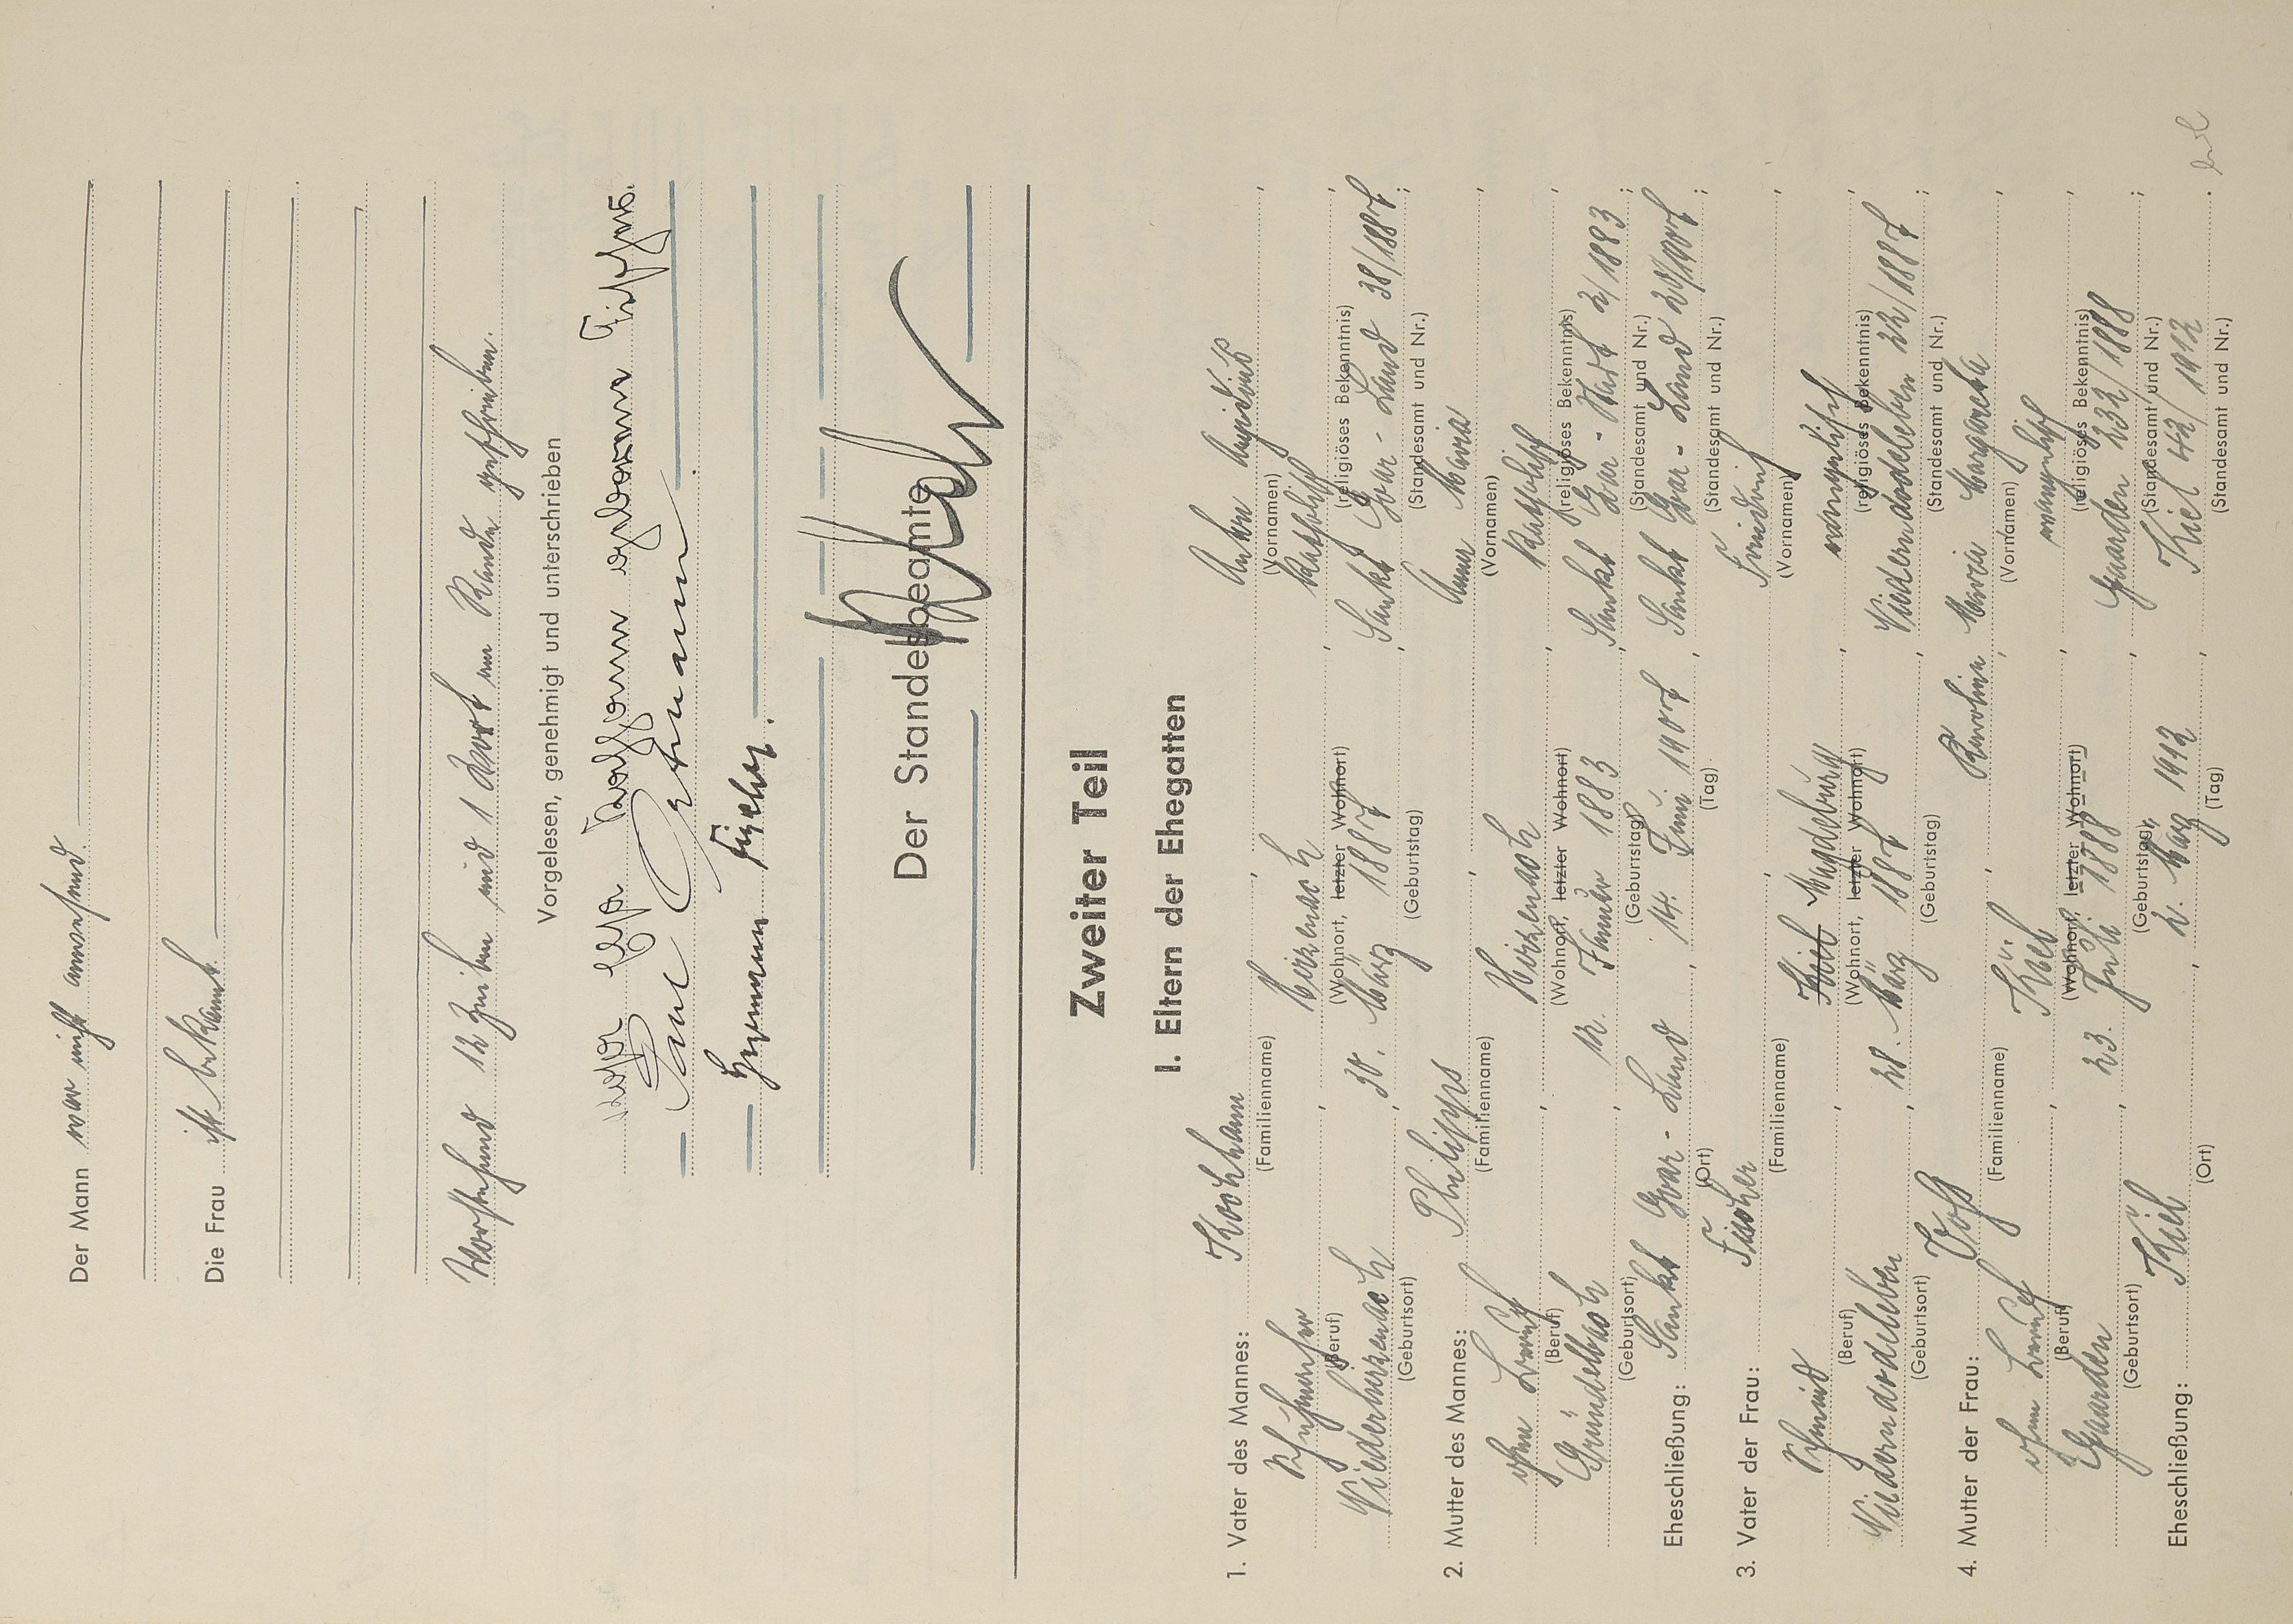 Der Mann war nicht anwesend.
Die Frau ist bekannt.
Vorstehend 12 Zeilen und 1 Wort am Rande geschrieben.
Vorgelesen, genehmigt und unterschrieben
geborene Fischer.
Paul
Hermann Fischer.
Der Standesbeamte
Zweiter Teil
I. Eltern der Ehegatten
1. Vater des Mannes: Kochhann, Anton Aegidius,
(Familienname) (Vornamen)
Schuhmacher, Hirzenach, katholisch,
(Beruf) (Wohnort, letzter Wohnort) (religiöses Bekenntnis)
Niederhirzenach, 30. März 1887, Sankt Goar-Land 38/1887;
(Geburtsort) (Geburtstag) (Standesamt und Nr.)
2. Mutter des Mannes: Philipps, Anna Maria,
(Familienname) (Vornamen)
ohne Beruf, Hirzenach, katholisch,
(Beruf) (Wohnort, letzter Wohnort) (religiöses Bekenntnis)
Gründelbach, 12. Januar 1883, Sankt Goar-Stadt 2/1883;
(Geburtsort) (Geburtstag) (Standesamt und Nr.)
Eheschließung: Sankt Goar-Land, 14. Juni 1907, Sankt Goar-Land 20/1907;
(Ort) (Tag) (Standesamt und Nr.)
3. Vater der Frau: Fischer, Friedrich,
(Familienname) (Vornamen)
Schmied, Kiel Magdeburg, evangelisch,
(Beruf) (Wohnort, letzter Wohnort) (religiöses Bekenntnis)
Niederndodeleben, 28. März 1887, Niederndodeleben 22/1887;
(Geburtsort) (Geburtstag) (Standesamt und Nr.)
4. Mutter der Frau: Voß, Karoline Maria Margareta,
(Familienname) (Vornamen)
ohne Beruf, Kiel, evangelisch,
(Beruf) (Wohnort, letzter Wohnort) (religiöses Bekenntnis)
Gaarden, 23. Juli 1888, Gaarden 232/1888;
(Geburtsort) (Geburtstag) (Standesamt und Nr.)
Eheschließung: Kiel, 2. März 1912, Kiel 42/1912.
(Ort) (Tag) (Standesamt und Nr.)